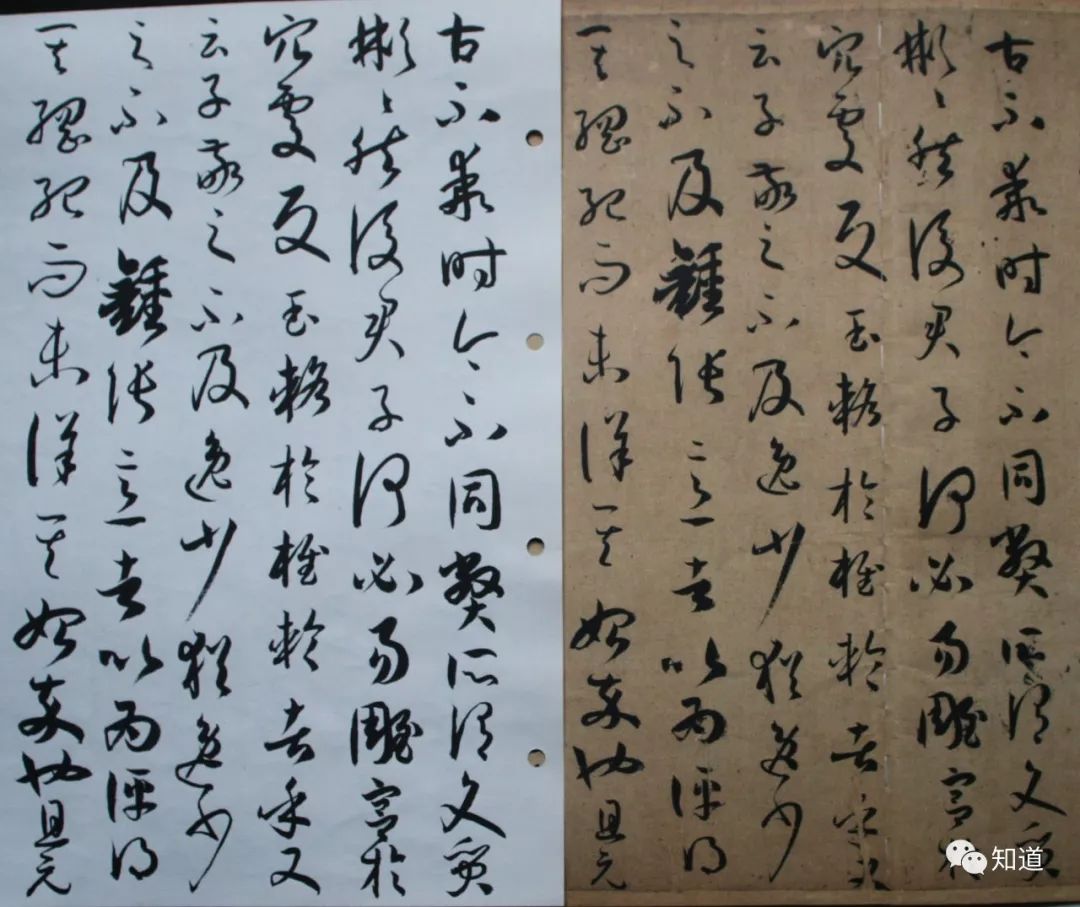 古不乖時今不同弊所謂文質
彬〻然後君子何必易雕宮於
穴處反玉輅於椎輪者乎又
云子敬之不及逸少猶逸少
之不及鍾張意者以為評得
其綱紀而未詳其始卒也且元
古不乖時今不同弊所謂文質
彬〻然後君子何必易雕宮於
穴處反玉輅於椎輪者乎又
云子敬之不及逸少猶逸少
之不及鍾張意者以為評得
其綱紀而未詳其始卒也且元
知道